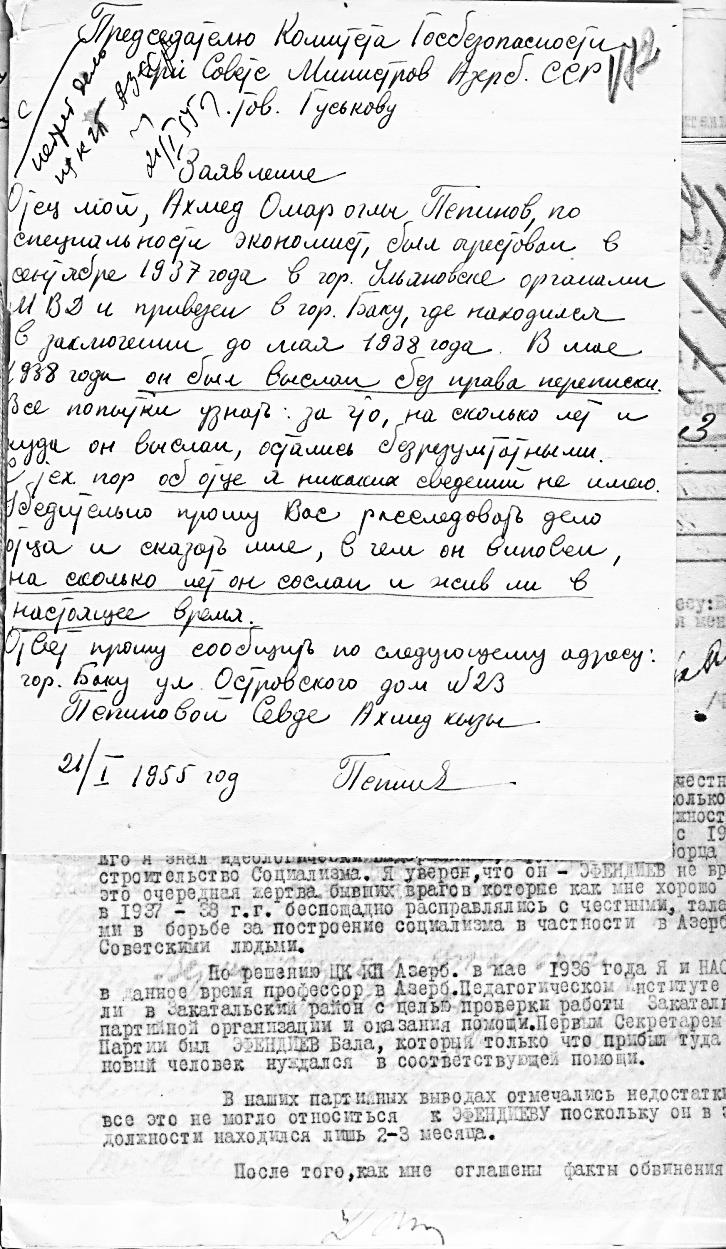 Председателю Комитета Госбезопасности
при Совете Министров Азерб. ССР
тов. Гуськову
172
21/I 55 г.
Заявление
Отец мой, Ахмед Омар оглы Пепинов, по
специальности экономист, был арестован в
сентябре 1937 года в гор. Ульяновске органами
МВД и привезен в гор. Баку, где находился
в заключении до мая 1938 года. В мае
1938 года он был выслан без права переписки.
Все попытки узнать: за что, на сколько лет и
куда он выслан, остались безрезультатными.
С тех пор об отце я никаких сведений не имею.
Убедительно прошу Вас расследовать дело
отца и сказать мне, в чем он виновен,
на сколько лет он сослан и жив ли в
настоящее время.
Ответ прошу сообщить по следующему адресу:
гор. Баку ул. Островского дом №23
Пепиновой Севде Ахмед кызы
21/I 1955 год
его я знал идеологически
борца
строительство Социализма. Я уверен,что он - ЭФЕНДИЕВ не вр
это очередная жертва бывших врагов которые как мне хорошо
в 1937 - 38 г.г. беспощадно расправлялись с честными, тала
ми в борьбе за построение социализма в частности в Азерб
Советскими людьми.
По решению ЦК КП Азерб. в мае 1936 года Я и НАС
в данное время профессор в Азерб.Педагогическом Институте
ли в Закатальский район с целью проверки работы Закатали
партийной организации и оказания помощи.Первым Секретарем
Партии был ЭФЕНДИЕВ Бала, который только что прибыл туда
новый человек нуждался в соответствующей помощи.
В наших партийных выводах отмечались недостатки
все это не могло относиться к ЭФЕНДИЕВУ поскольку он в з
должности находился лишь 2-3 месяца.
После того,как мне оглашены факты обвинения